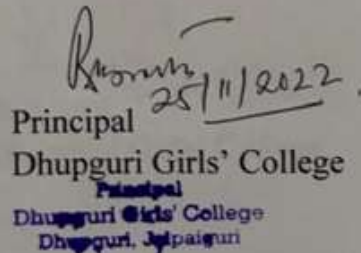 25/11/2022
Principal
Dhupguri Girls' College
Principal
Dhupguri Girls' College
Dhupguri, Jalpaiguri